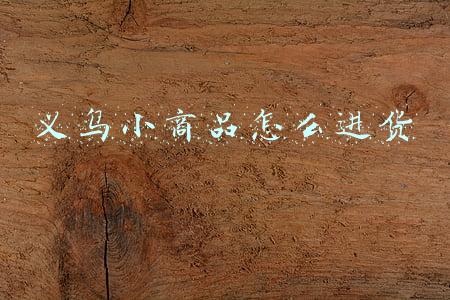 义乌小商品怎么进货